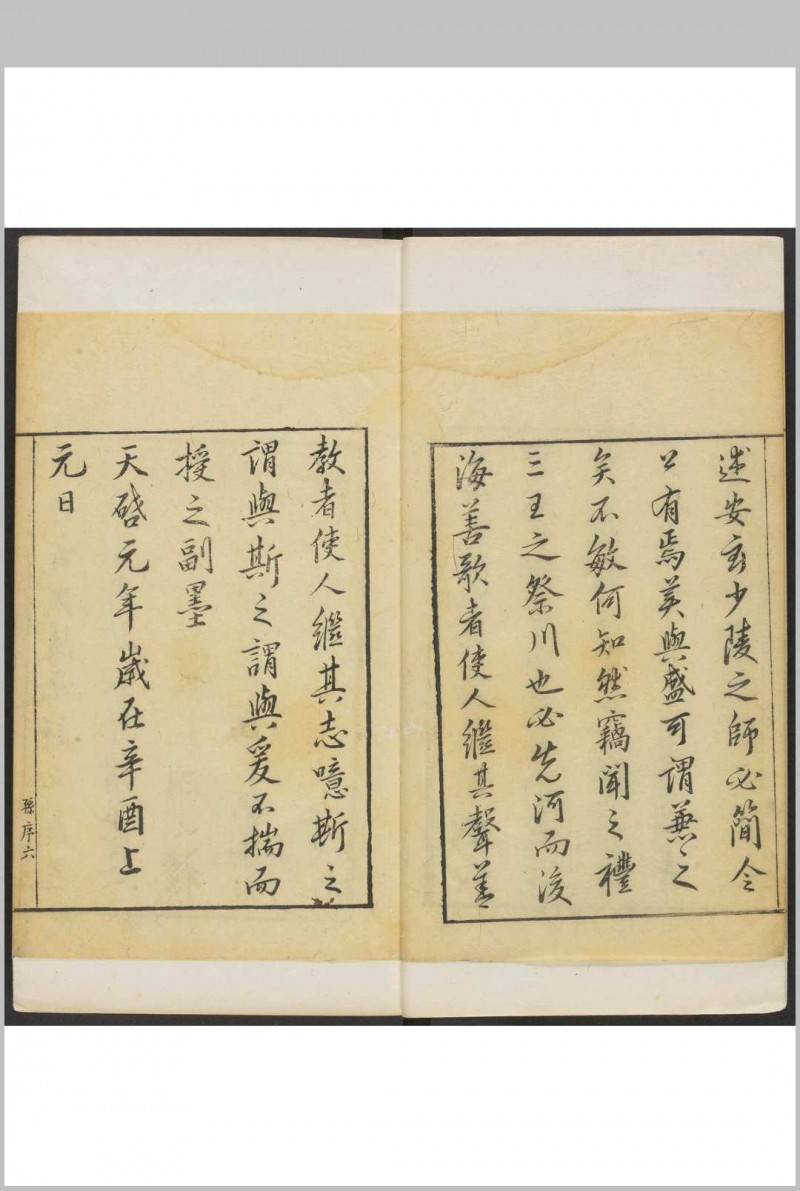 述安玄少陵之師必簡令
公有焉美與盛可謂兼之
矣不敏何知然竊聞之禮
三王之祭川也必先河而後
海善歌者使人繼其聲善
教者使人繼其志噫斯之
謂與斯之謂與爰不揣而
授之副墨
天啓元年歲在辛酉上
元日
孫序六